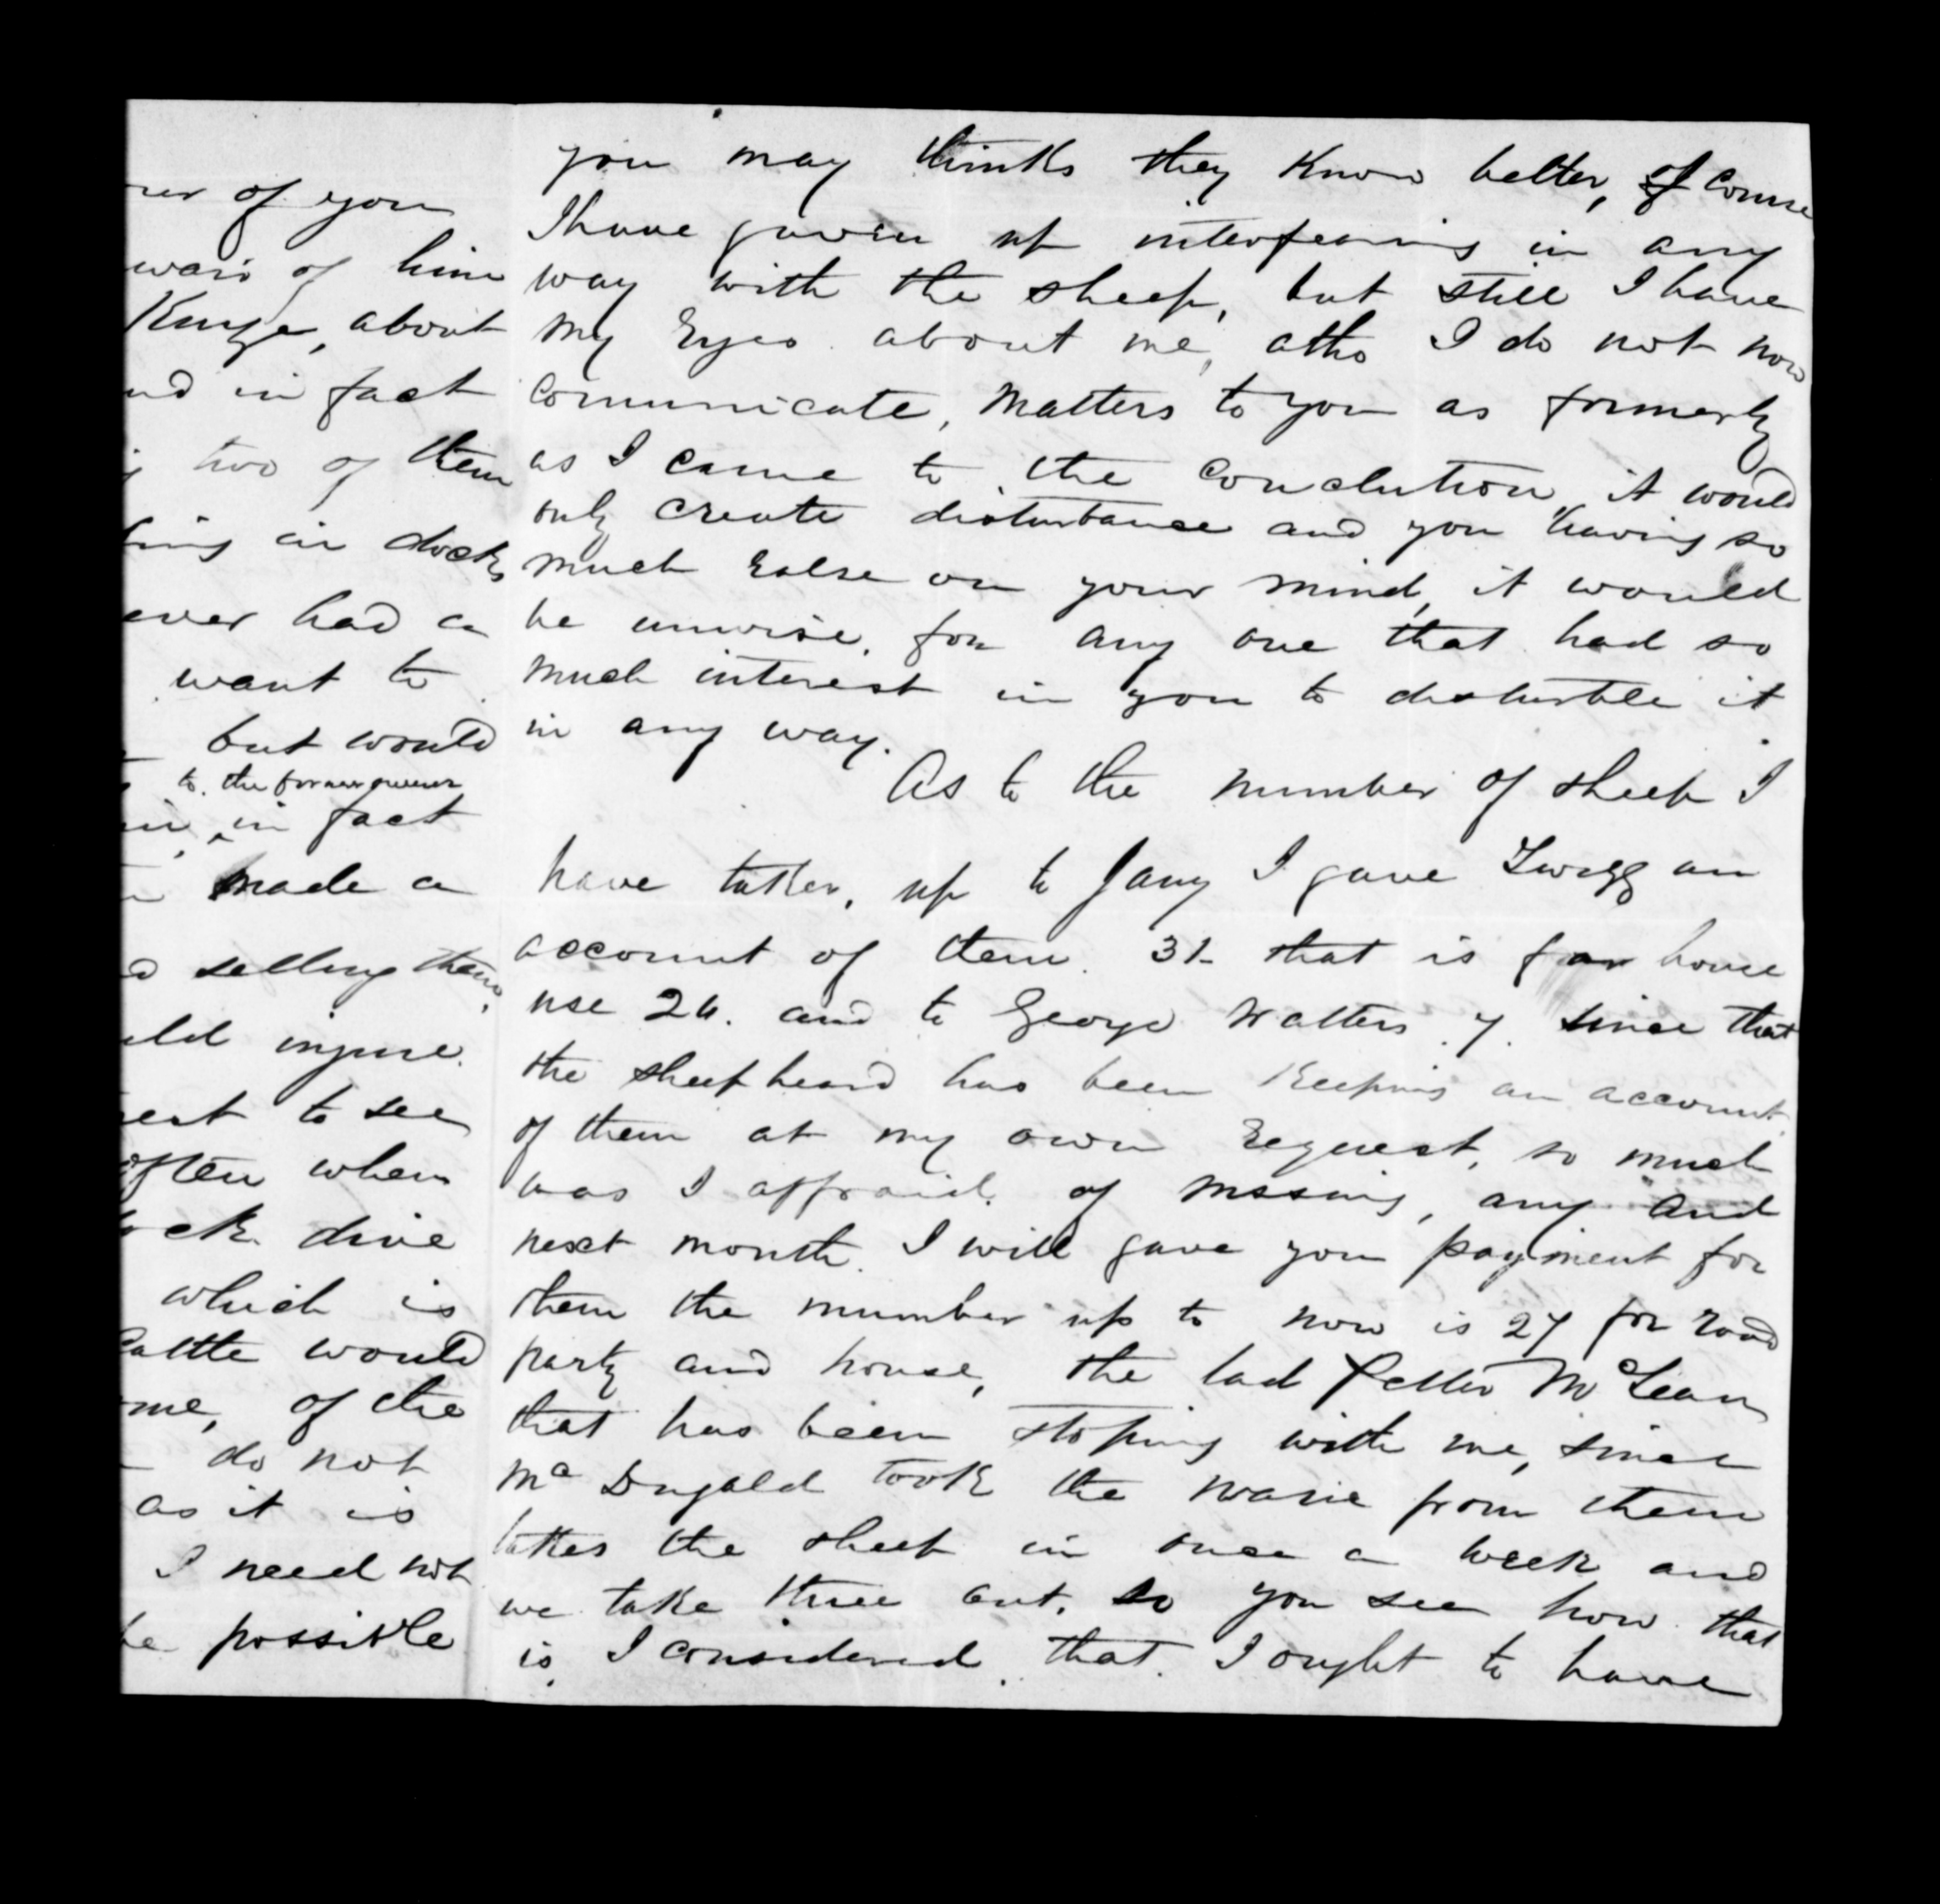 of you
of him
about
in fact
two of them
in docks
ever had a
want to
but would
to the former owner
in fact
made a
selling them
injure.
to see
often when
drive
which is
Cattle would
me, of the
do not
as it is
I need not
be possible
you may thinks they Know better, of course
I have gaven up interfearing in any
way with the sheep, but still I have
my Eyes about me, altho I do not now
Communicate, Matters to you as formerly
as I came to the Conclution it would
only create disturbance and you having so
much Ealse on your mind, it would
be unwise, for any one that had so
much interest in you to disturble it
in any way.
As to the number of sheep I
have taken, up to Jany I gave Twigg an
account of them. 31 that is for house
use 24. and to George Walters 7. since that
the sheepheard has been Keeping an account
of them at my own Request, so much
was I affraid of mssing, any and
next month I will gave you payment for
them the number up to now is 27 for road
party and house, the lad Petter McLean
that has been stoping with me, since
McDugald took the warie from them
takes the sheep in once a week and
we take three out. so you see how that
is, I considered that I ought to have